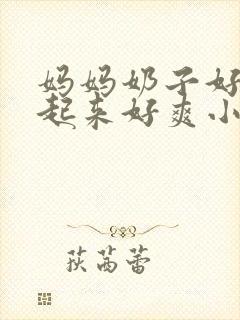 妈妈奶子好
起来好爽小
荻芮蕾